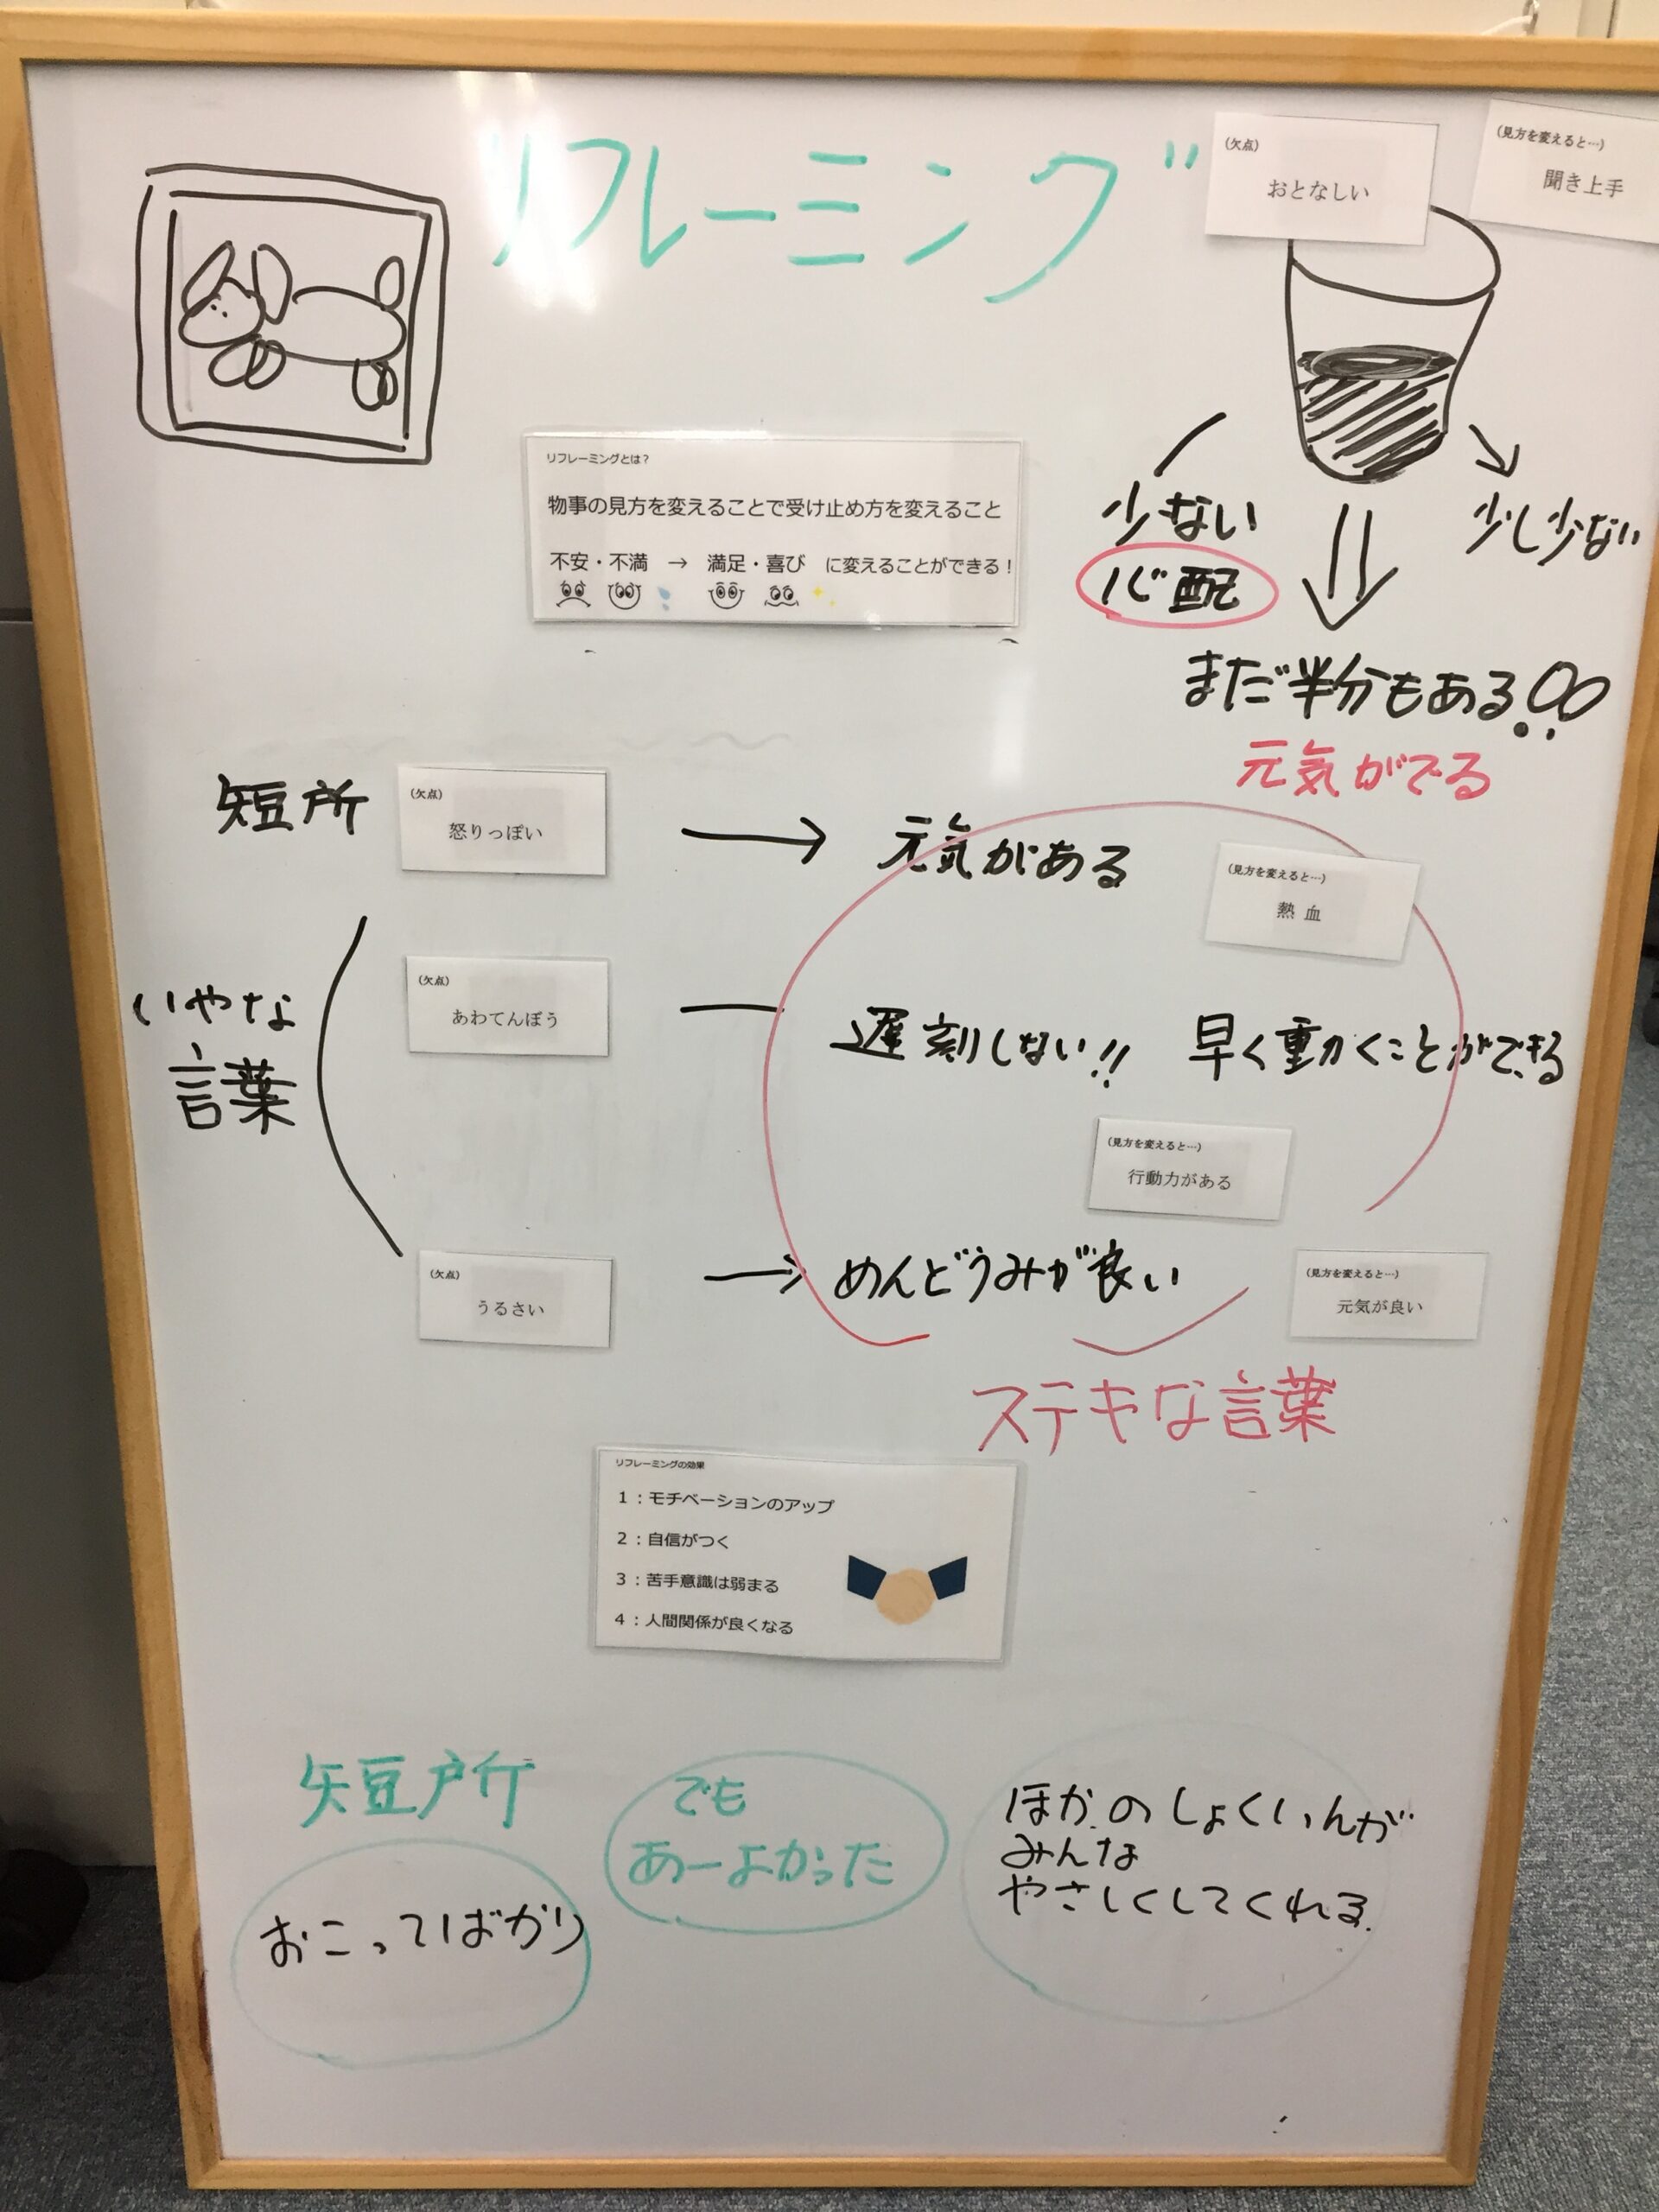 リフレーミング
(欠点)
おとなしい
(見方を変えると…)
聞き上手
リフレーミングとは？
物事の見方を変えることで受け止め方を変えること
不安・不満 → 満足・喜び に変えることができる！
少ない
心配
少し少ない
まだ半分もある!!
元気がでる
短所
(欠点)
怒りっぽい
元気がある
(見方を変えると…)
熱血
いやな
言葉
(欠点)
あわてんぼう
遅刻しない!!
早く動くことができる
(見方を変えると…)
行動力がある
(欠点)
うるさい
めんどうみが良い
(見方を変えると…)
元気が良い
ステキな言葉
リフレーミングの効果
1：モチベーションのアップ
2：自信がつく
3：苦手意識は弱まる
4：人間関係が良くなる
短所
おこってばかり
でも
あーよかった
ほかのしょくいんが
みんな
やさしくしてくれる.